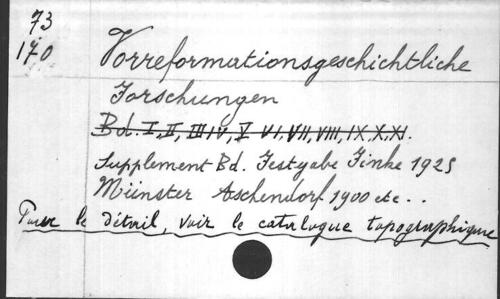 73
170
Vorreformationsgeschichtliche
Forschungen
Bd. I, II, III IV, V VI, VII, VIII, IX, X, XI.
Supplement Bd. Festgabe Finke 1925
Münster Aschendorf 1900 etc..
Pour le détail, voir le catalogue topographique